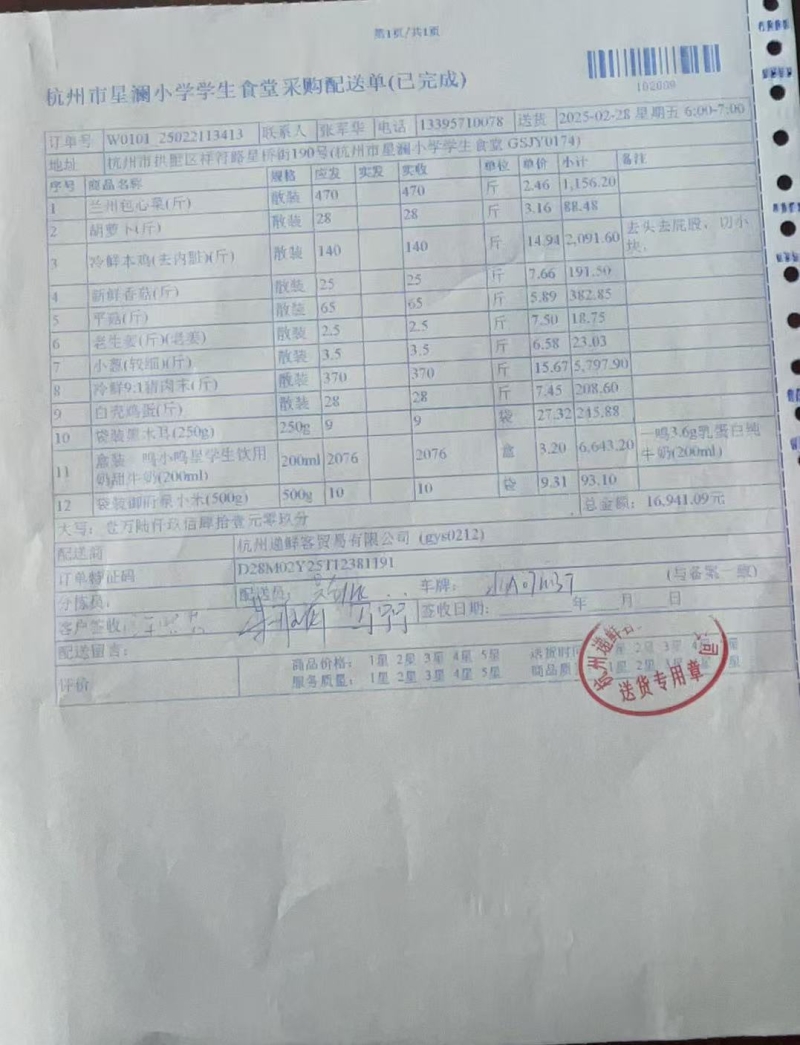 第1页/共1页
102009
杭州市星澜小学学生食堂采购配送单(已完成)
订单号 W0101_25022113413 联系人 张军华 电话 13395710078 送货 2025-02-28 星期五 6:00-7:00
地址 杭州市拱墅区祥符路星桥街190号(杭州市星澜小学学生食堂 GSJY0174)
序号 商品名称 规格 应发 实发 实收 单位 单价 小计 备注
1 兰州包心菜(斤) 散装 470 470 斤 2.46 1,156.20
2 胡萝卜(斤) 散装 28 28 斤 3.16 88.48
3 冷鲜本鸡(去内脏)(斤) 散装 140 140 斤 14.94 2,091.60 去头去屁股，切小块。
4 新鲜香菇(斤) 散装 25 25 斤 7.66 191.50
5 平菇(斤) 散装 65 65 斤 5.89 382.85
6 老生姜(斤)(老姜) 散装 2.5 2.5 斤 7.50 18.75
7 小葱(较细)(斤) 散装 3.5 3.5 斤 6.58 23.03
8 冷鲜9:1猪肉末(斤) 散装 370 370 斤 15.67 5,797.90
9 白壳鸡蛋(斤) 散装 28 28 斤 7.45 208.60
10 袋装黑木耳(250g) 250g 9 9 袋 27.32 245.88
11 盒装一鸣小鸣星学生饮用奶甜牛奶(200ml) 200ml 2076 2076 盒 3.20 6,643.20 一鸣3.6g乳蛋白纯牛奶(200ml)
12 袋装御府泉小米(500g) 500g 10 10 袋 9.31 93.10
总金额：16,941.09元
大写：壹万陆仟玖佰肆拾壹元零玖分
配送商 杭州递鲜客贸易有限公司 (gys0212)
订单特征码 D28M02Y25T12381191
分拣员： 配送员： 车牌： (与备案一致)
客户签收： 签收日期： 年 月 日
配送留言：
评价 商品价格： 1星 2星 3星 4星 5星 送货时间
服务质量： 1星 2星 3星 4星 5星 商品质
送货专用章